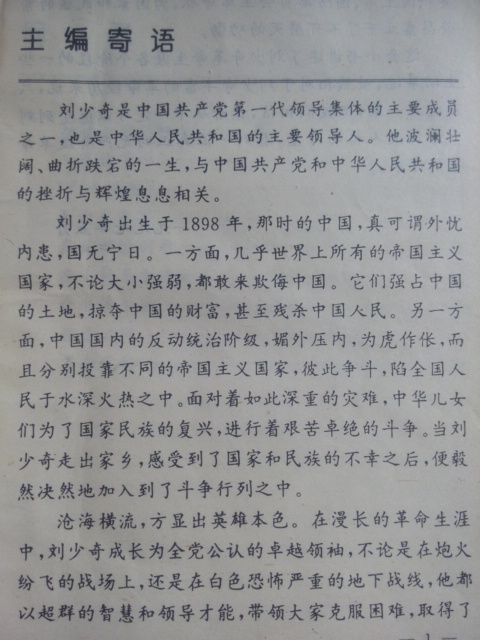 主编寄语
刘少奇是中国共产党第一代领导集体的主要成员
之一,也是中华人民共和国的主要领导人。他波澜壮
阔、曲折跌宕的一生,与中国共产党和中华人民共和国
的挫折与辉煌息息相关。
刘少奇出生于1898年,那时的中国,真可谓外忧
内患,国无宁日。一方面,几乎世界上所有的帝国主义
国家,不论大小强弱,都敢来欺侮中国。它们强占中国
的土地,掠夺中国的财富,甚至残杀中国人民。另一方
面,中国国内的反动统治阶级,媚外压内,为虎作伥,而
且分别投靠不同的帝国主义国家,彼此争斗,陷全国人
民于水深火热之中。面对着如此深重的灾难,中华儿女
们为了国家民族的复兴,进行着艰苦卓绝的斗争。当刘
少奇走出家乡,感受到了国家和民族的不幸之后,便毅
然决然地加入到了斗争行列之中。
沧海横流,方显出英雄本色。在漫长的革命生涯
中,刘少奇成长为全党公认的卓越领袖,不论是在炮火
纷飞的战场上,还是在白色恐怖严重的地下战线,他都
以超群的智慧和领导才能,带领大家克服困难,取得了